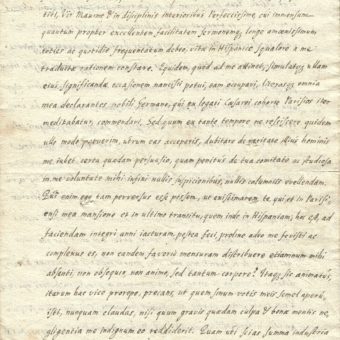 tiòt, Vir Maxime & in disciplinis interioribus perfectissime, cui immensum
quantum propter excellentem facilitatem sermonemq. longe amoenissimum
toties ac quotidie, frequentatum debeo, vitae in Hispanico squalore a me
traductae rationem constare. Equidem, quod ad me attinet, simulatq. ullam
eius significandae occasionem nancisci potui, eam occupavi, literasq. omnia
mea declarantes nobili Germano, qui ex legati Caesarei cohorte Parisios iter
meditabatur, commendavi. Sed quum ex tanto tempore ne rescissere quidem
ullo modo potuerim, utrum eas acceperis, dubitare de veritate illius hominis
me iubet certa quaedam persuasio, quam penitus de tua comitate ac studiosa
in me voluntate mihi infixi nullis suspicionibus, nullis calumniis evellendam.
Qui enim ego tam perversus esse possem, ut existimarem, te, qui et in Parisi-
ensi mea mansione et in ultimo transitu, quem inde in Hispaniam, hac ad
faciendam integri anni iacturam, pestea feci, prolixe adeo me favisti ac
complexus es, non eandem favoris mensuram distribuere etiamnum mihi
absenti, non obsequio non animo, sed tantum corpore? Itaq. sic animatus,
iterum hac vice prorepo, precans, ut quem sinum votis meis semel aperu-
isti, nunquam claudas, nisi quum gravis quaedam culpa & bonae mentis ne-
gligentia me indignum eo reddiderit. Quam ubi scias summa industria